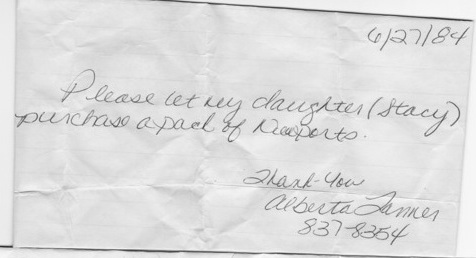 6/27/84
Please let my daughter (Stacy)
purchase a pack of Newports.
Thank-You
Alberta Tanner
837-8354